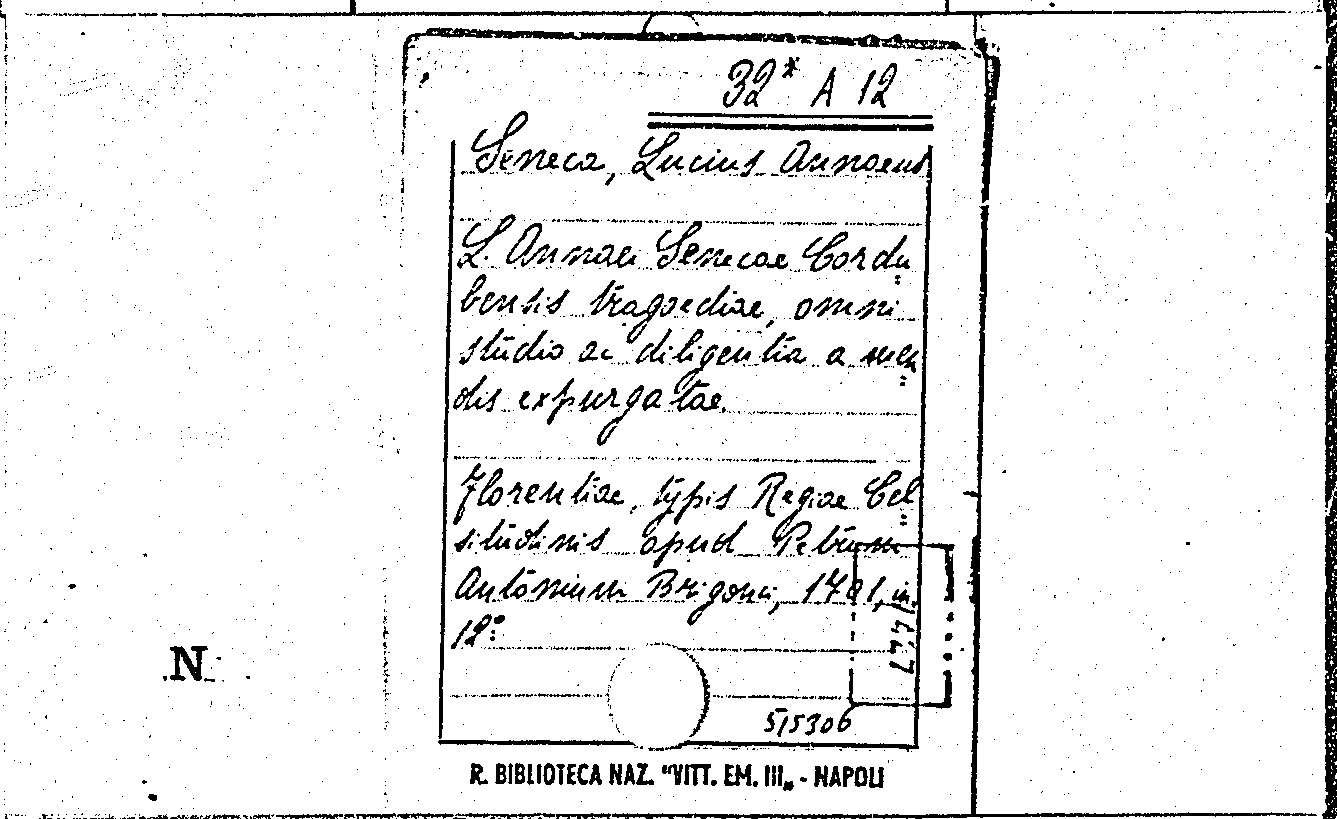 32* A 12
Seneca, Lucius Annaeus
L. Annaei Senecae Cordu
bensis tragoediae, omni
studio ac diligentia a men
dis expurgatae.
Florentiae, typis Regiae Cel
situdinis apud Petrum
Antonium Brigonci, 1701, in
12º
515306
N
R. BIBLIOTECA NAZ. "VITT. EM. III„ - NAPOLI